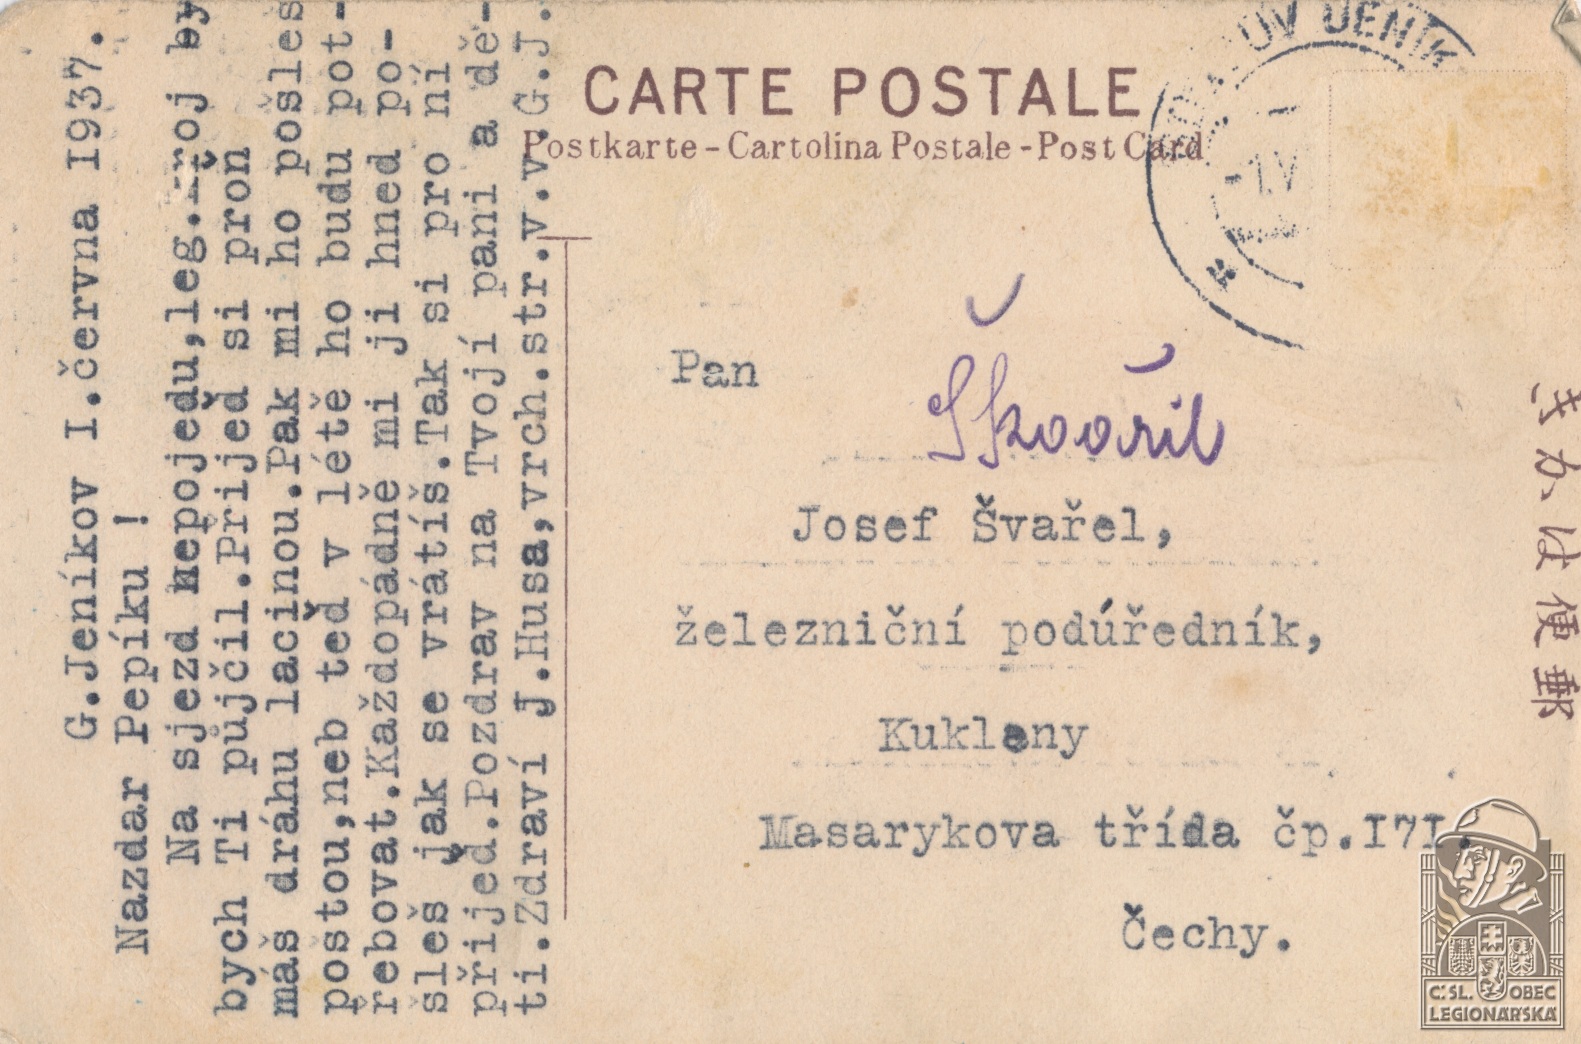 CARTE POSTALE
Postkarte - Cartolina Postale - Post Card
G.Jeníkov I.června 1937.
Nazdar Pepíku !
Na sjezd nepojedu,leg.stroj by
bych Ti půjčil.Přijeď si proň
máš dráhu lacinou.Pak mi ho pošleš
poštou,neb teď v létě ho budu pot-
řebovat.Každopádně mi ji hned po-
šleš jak se vrátíš.Tak si pro ní
přijeď.Pozdrav na Tvojí pani a dě-
ti.Zdraví J.Husa,vrch.str.v.v.G.J.
Pan
Škovřil
Josef Švařel,
železniční podúředník,
Kukleny
Masarykova třída čp.I7I.
Čechy.
JENÍK
-1.V
郵便はがき
Č.SL. OBEC
LEGIONÁŘSKÁ